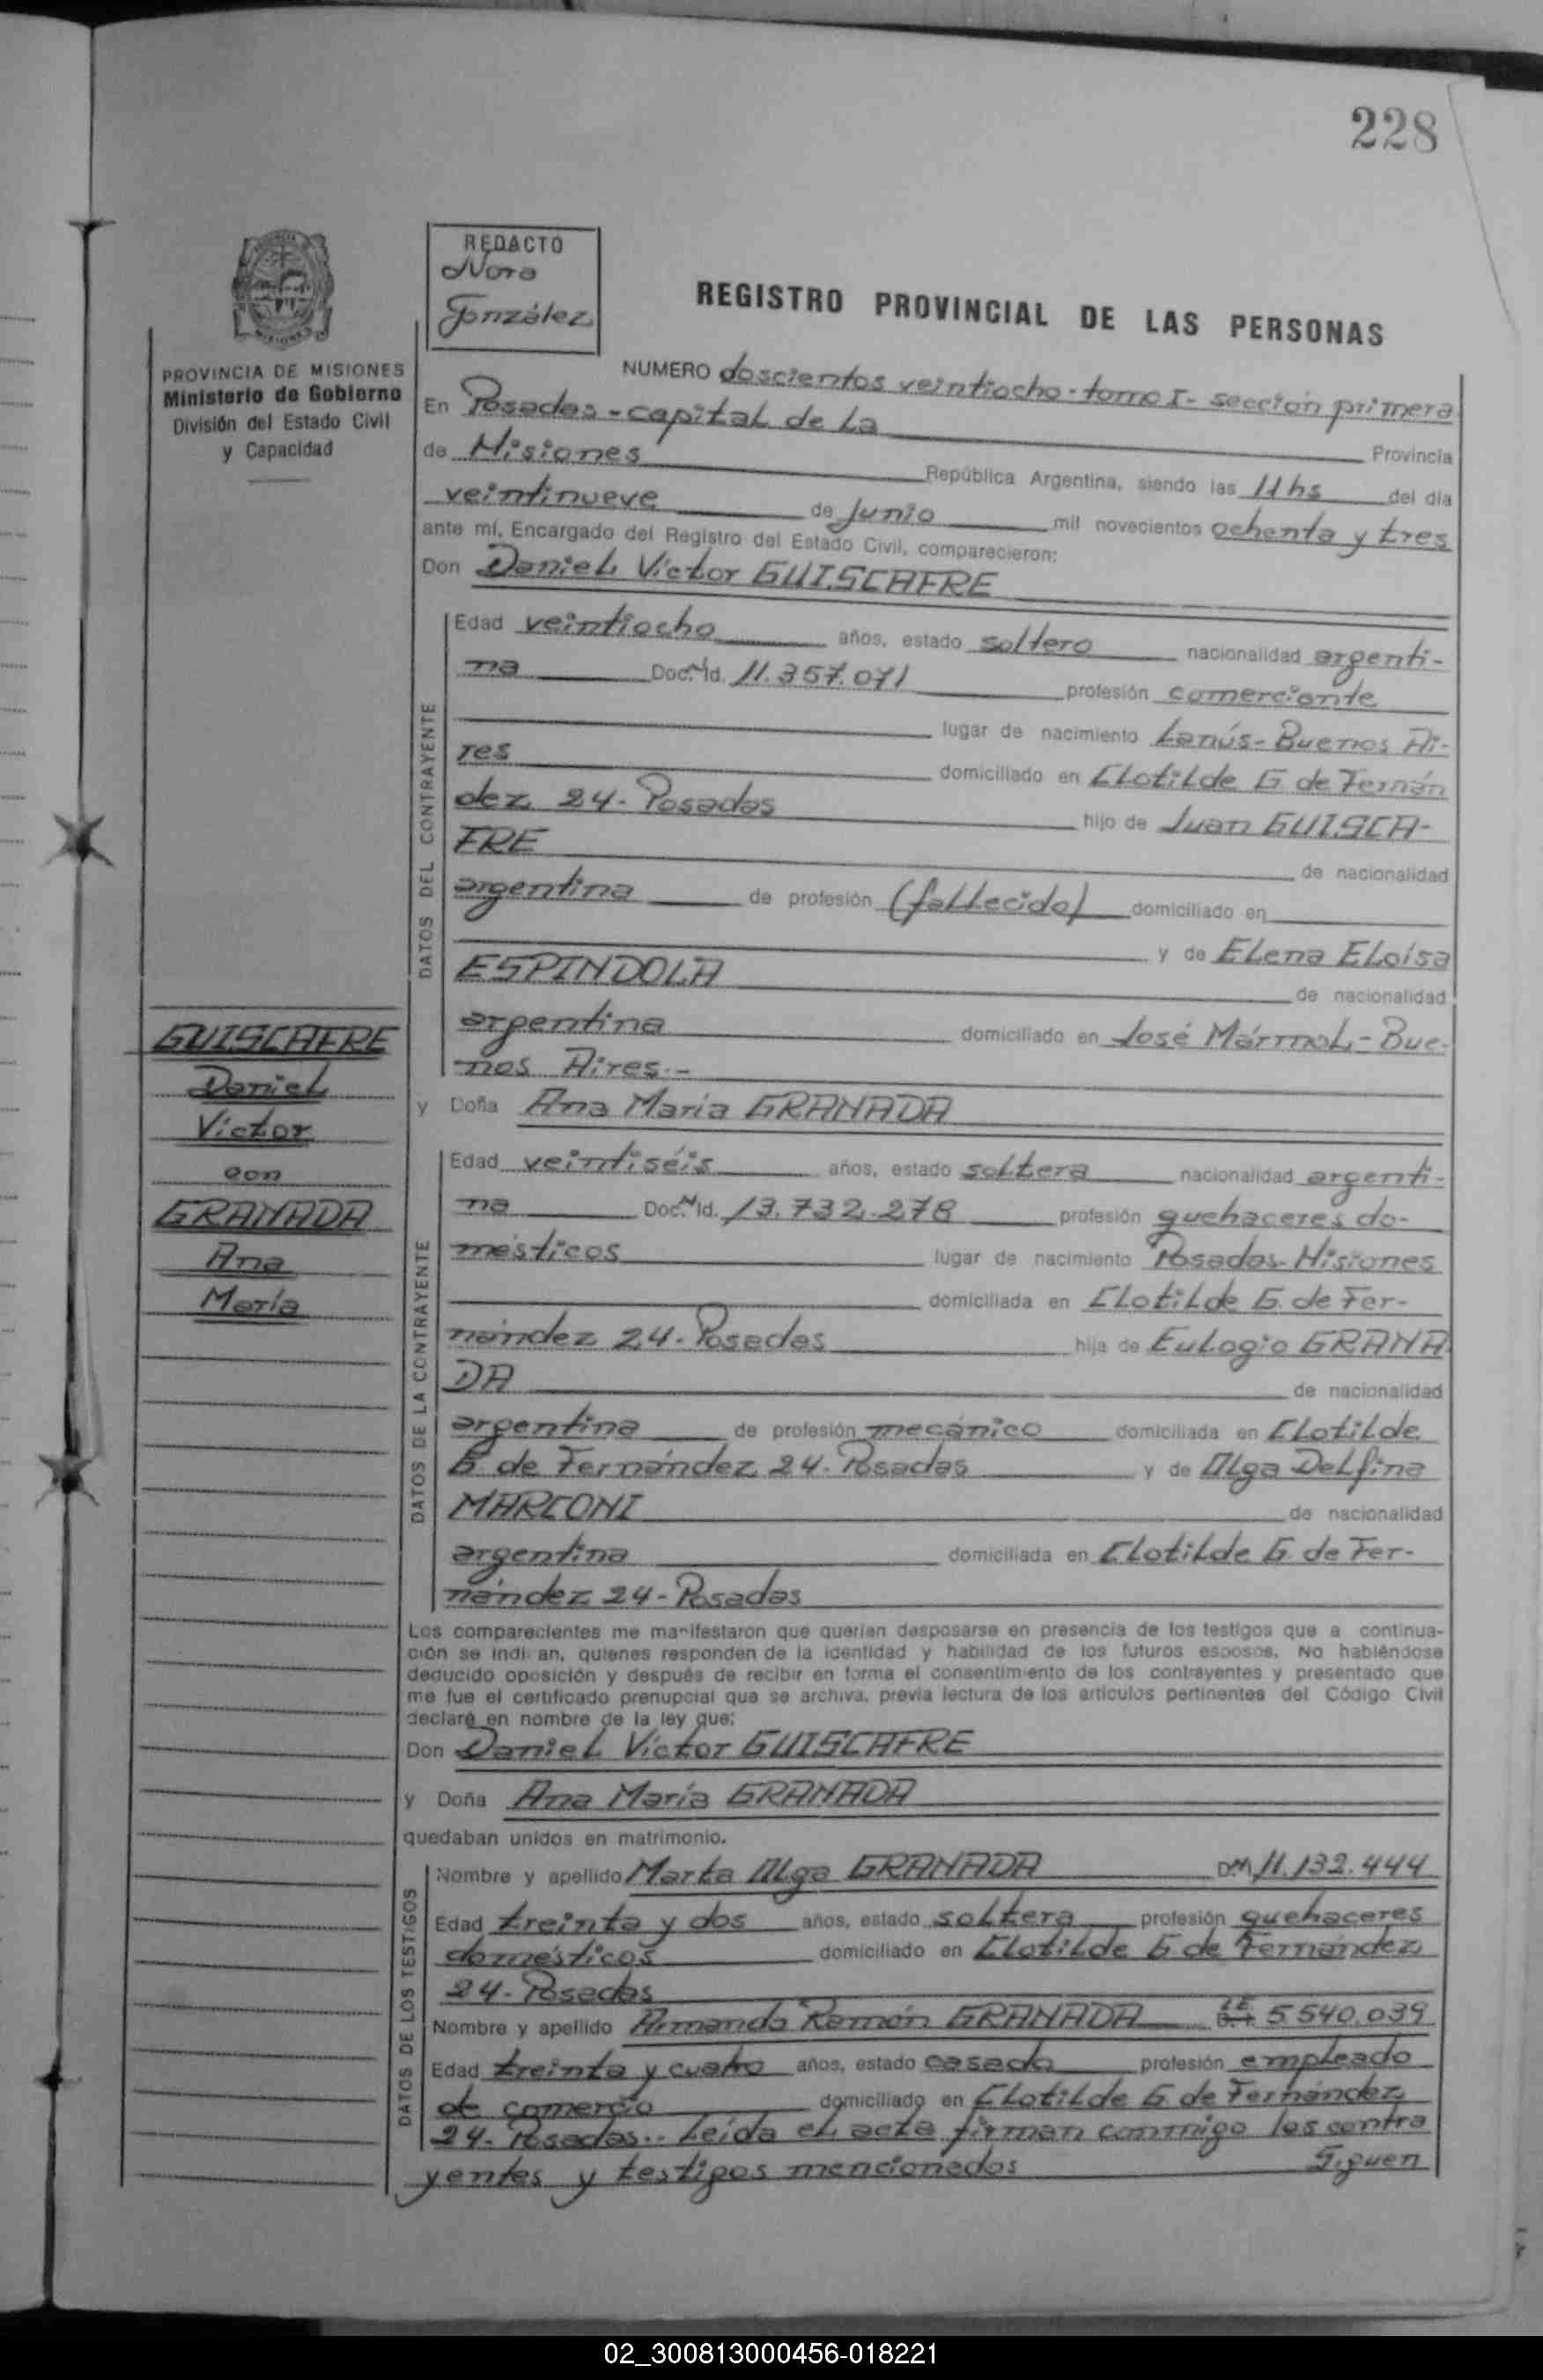 228
REDACTO
Nora
González
REGISTRO PROVINCIAL DE LAS PERSONAS
PROVINCIA DE MISIONES
Ministerio de Gobierno
División del Estado Civil
y Capacidad
NUMERO doscientos veintiocho - tomo I - sección primera
En Posadas - capital de La Provincia
de Misiones República Argentina, siendo las 11 hs del día
veintinueve de Junio mil novecientos ochenta y tres
ante mí, Encargado del Registro del Estado Civil, comparecieron:
Don Daniel Victor GUISCAFRE
DATOS DEL CONTRAYENTE
Edad veintiocho años, estado soltero nacionalidad argenti-
na Doc. N. Id. 11.357.071 profesión comerciante
lugar de nacimiento Lanús - Buenos Ai-
res domiciliado en Clotilde G de Fernán
dez 24 - Posadas hijo de Juan GUISCA-
FRE de nacionalidad
argentina de profesión (fallecido) domiciliado en
y de Elena Eloísa
ESPINDOLA de nacionalidad
argentina domiciliado en José Mármol - Bue-
nos Aires.-
y Doña Ana Maria GRANADA
DATOS DE LA CONTRAYENTE
Edad veintiséis años, estado soltera nacionalidad argenti-
na Doc. N. Id. 13.732.278 profesión quehaceres do-
mésticos lugar de nacimiento Posadas - Misiones
domiciliada en Clotilde G. de Fer-
nández 24 - Posadas hija de Eulogio GRANA
DA de nacionalidad
argentina de profesión mecánico domiciliada en Clotilde
G de Fernández 24 - Posadas y de Olga Delfina
MARCONI de nacionalidad
argentina domiciliada en Clotilde G. de Fer-
nández 24 - Posadas
Los comparecientes me manifestaron que querían desposarse en presencia de los testigos que a continua-
ción se indi an, quienes responden de la identidad y habilidad de los futuros esposos. No habiéndose
deducido oposición y después de recibir en forma el consentimiento de los contrayentes y presentado que
me fue el certificado prenupcial que se archiva, previa lectura de los artículos pertinentes del Código Civil
declaré en nombre de la ley que:
Don Daniel Victor GUISCAFRE
y Doña Ana María GRANADA
quedaban unidos en matrimonio.
DATOS DE LOS TESTIGOS
Nombre y apellido Marta Olga GRANADA 11.132.444
Edad treinta y dos años, estado soltera profesión quehaceres
domésticos domiciliado en Clotilde G de Fernández
24 - Posadas
Nombre y apellido Armando Ramón GRANADA LE 5.540.039
Edad treinta y cuatro años, estado casado profesión empleado
de comercio domiciliado en Clotilde G. de Fernández
24 - Posadas.. Leída el acta firman conmigo los contra
yentes y testigos mencionados Siguen
GUISCAFRE
Daniel
Victor
con
GRANADA
Ana
María
02_300813000456-018221